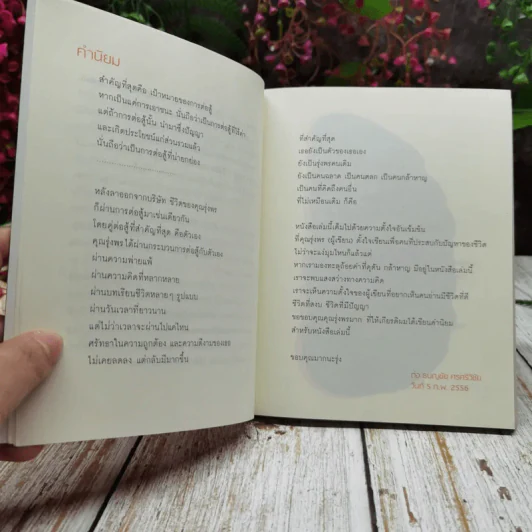 คำนิยม
สำคัญที่สุดคือ เป้าหมายของการต่อสู้
หากเป็นแค่การเอาชนะ นั่นถือว่าเป็นการต่อสู้ที่
แต่ถ้าการต่อสู้นั้น นำมาซึ่งปัญญา
และเกิดประโยชน์แก่ส่วนรวมแล้ว
นั่นถือว่าเป็นการต่อสู้ที่น่ายกย่อง
หลังลาออกจากบริษัท ชีวิตของคุณรุ่งพร
ก็ผ่านการต่อสู้มาเช่นเดียวกัน
โดยคู่ต่อสู้ที่สำคัญที่สุด คือตัวเอง
คุณรุ่งพรได้ผ่านกระบวนการต่อสู้กับตัวเอง
ผ่านความพ่ายแพ้
ผ่านความคิดที่หลากหลาย
ผ่านบทเรียนชีวิตหลายๆ รูปแบบ
ผ่านวันเวลาที่ยาวนาน
แต่ไม่ว่าเวลาจะผ่านไปแค่ไหน
ศรัทธาในความถูกต้อง และความดีงามของเธอ
ไม่เคยลดลง แต่กลับมีมากขึ้น
ที่สำคัญที่สุด
เธอยังเป็นตัวของเธอเอง
ยังเป็นรุ่งพรคนเดิม
ยังเป็นคนฉลาด เป็นคนตลก เป็นคนกล้าหาญ
เป็นคนที่คิดถึงคนอื่น
ที่ไม่เหมือนเดิม ก็คือ
หนังสือเล่มนี้เต็มไปด้วยความตั้งใจอันเข้มข้น
ที่คุณรุ่งพร ผู้เขียน ตั้งใจเขียนเพื่อคนที่ประสบกับปัญหาของชีวิต
ไม่ว่าจะแง่มุมไหนก็แล้วแต่
หากเรามองทะลุถ้อยคำที่ดุดัน กล้าหาญ มีอยู่ในหนังสือเล่มนี้
เราจะพบแสงสว่างทางความคิด
เราจะเห็นความตั้งใจของผู้เขียนที่อยากเห็นคนอ่านมีชีวิตที่ดี
ชีวิตที่สงบ ชีวิตที่มีปัญญา
ขอขอบคุณคุณรุ่งพรมาก ที่ให้เกียรติผมได้เขียนคำนิยม
สำหรับหนังสือเล่มนี้
ขอบคุณมากนะรุ่ง
วันที่ 5 ก.พ. 2556